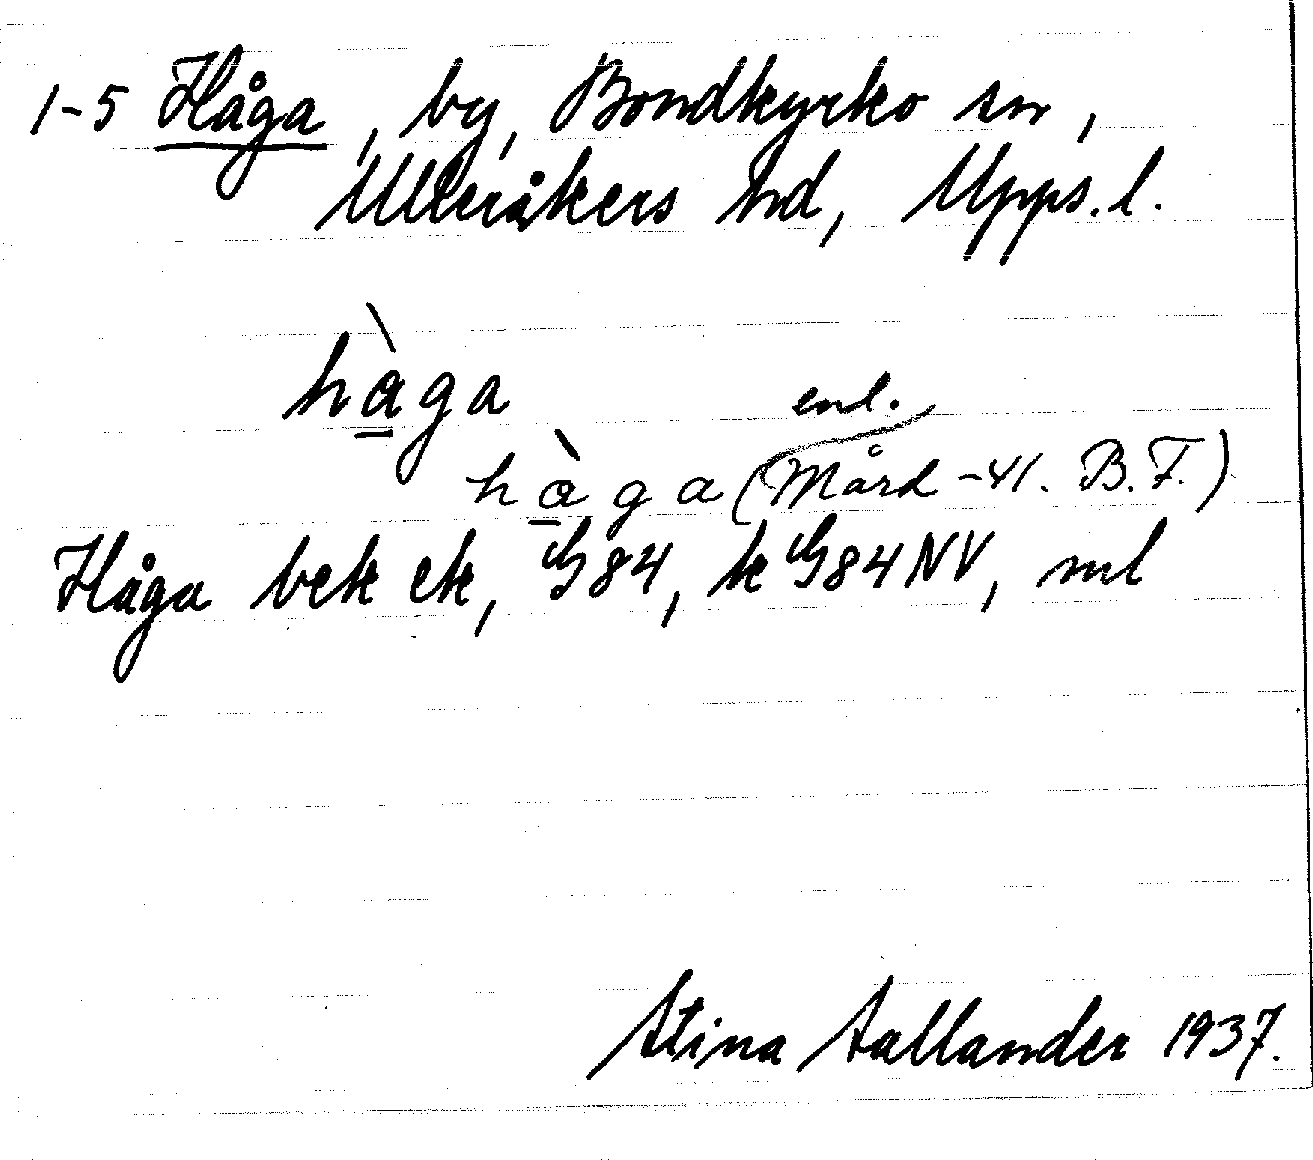 1-5 Håga, by, Bondkyrko sn,
Ulleråkers hd, Upps. l.
hàga
hàga (enl. Mård -41. B.F.)
Håga bek ek, G84, k G84NV, ml
Stina Sallander 1937.